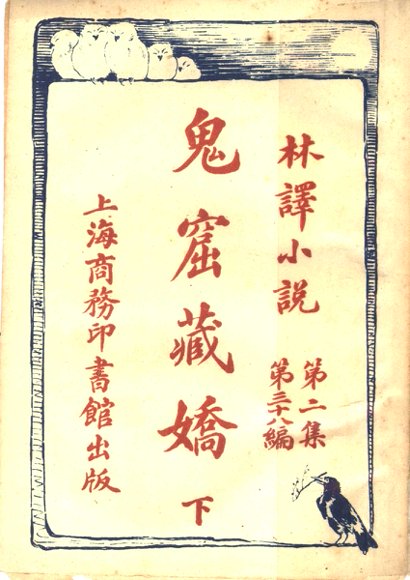 林譯小説
第二集
第三十八編
鬼窟藏嬌
下
上海商務印書館出版